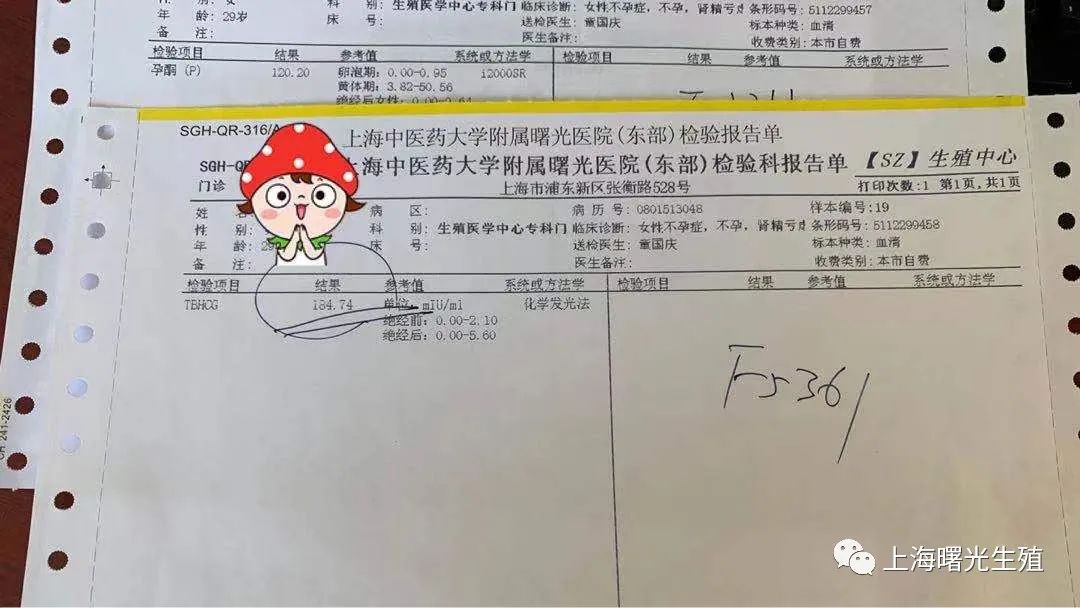 性 别：女 科 别：生殖医学中心专科门 临床诊断：女性不孕症，不孕，肾精亏虚 条形码号：5112299457
年 龄：29岁 床 号： 送检医生：童国庆 标本种类：血清
备 注： 医生备注： 收费类别：本市自费
检验项目 结果 参考值 系统或方法学 结果 参考值 系统或方法学
孕酮（P） 120.20 卵泡期：0.00-0.95 12000SR
黄体期：3.82-50.56
绝经后女性：0.00-0.64
SGH-QR-316/A 上海中医药大学附属曙光医院(东部)检验报告单
SGH-QR 上海中医药大学附属曙光医院(东部)检验科报告单 【SZ】生殖中心
门诊 上海市浦东新区张衡路528号 打印次数：1 第1页，共1页
姓 病 区： 病 历 号：0801513048 样本编号：19
性 别： 科 别：生殖医学中心专科门 临床诊断：女性不孕症，不孕，肾精亏虚 条形码号：5112299458
年 龄：29 床 号： 送检医生：童国庆 标本种类：血清
备 注： 医生备注： 收费类别：本市自费
检验项目 结果 参考值 系统或方法学 检验项目 结果 参考值 系统或方法学
TBHCG 184.74 单位：mIU/ml 化学发光法
绝经前：0.00-2.10
绝经后：0.00-5.60
CH 241-2426
上海曙光生殖